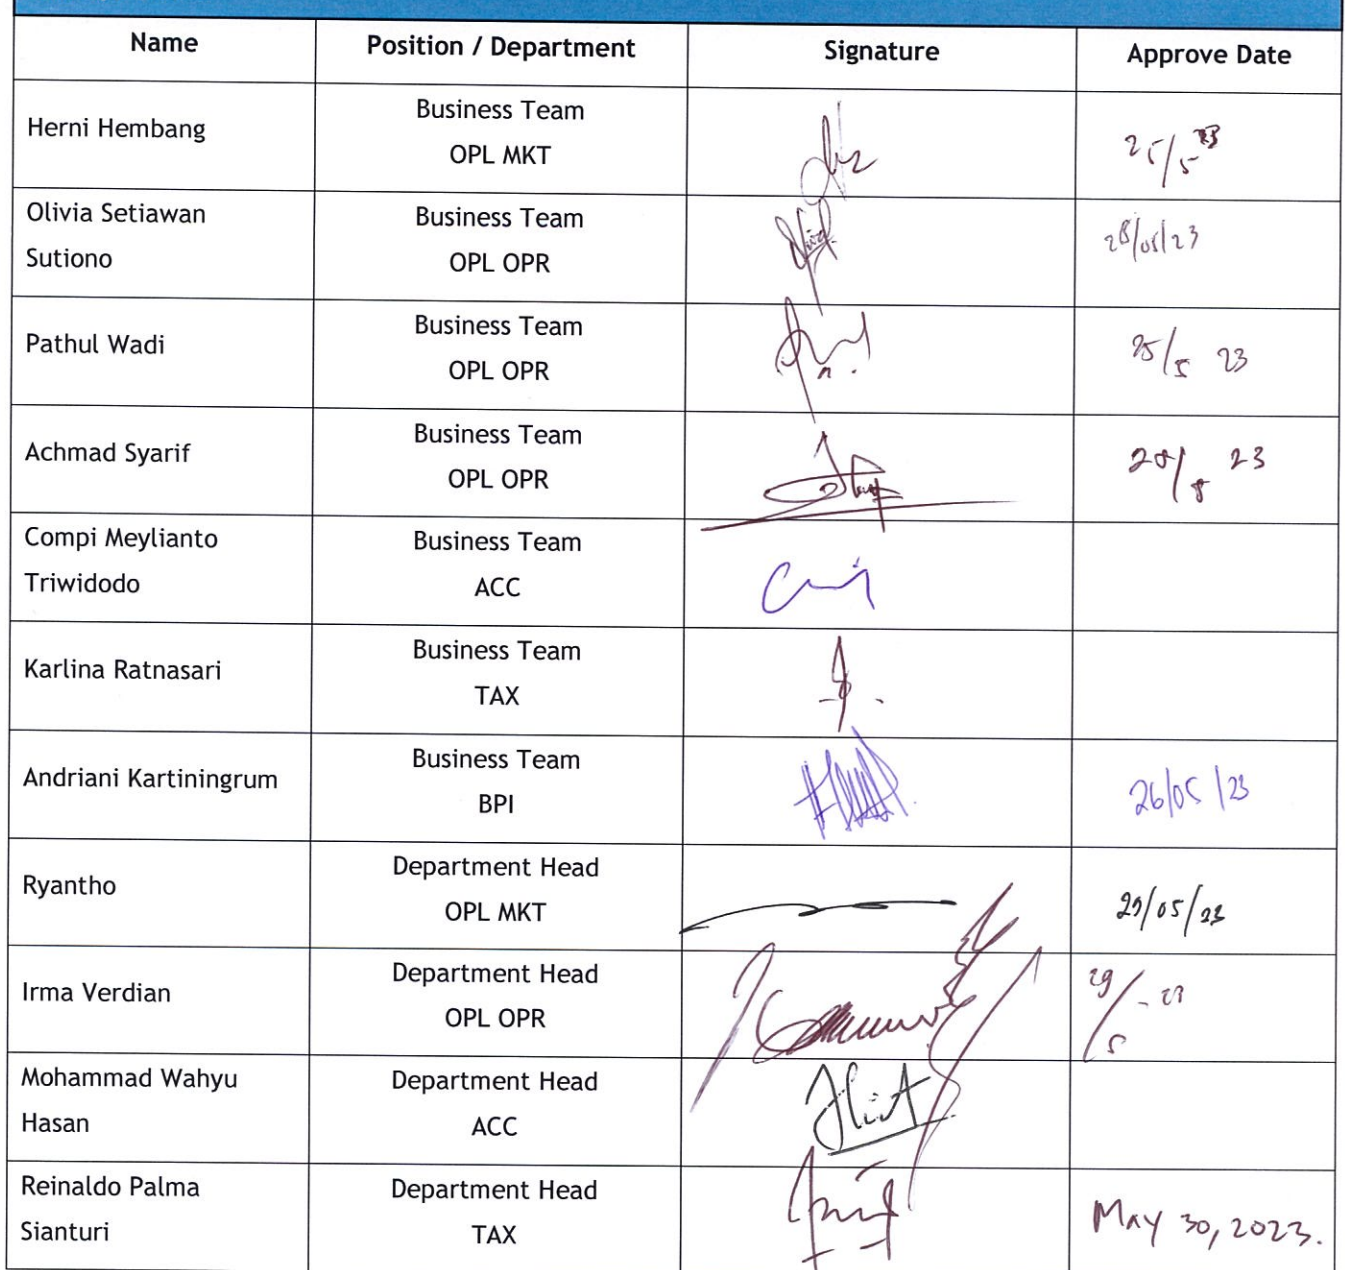 Name Position / Department Signature Approve Date
Herni Hembang
Business Team
OPL MKT
25/5 23
Olivia Setiawan
Sutiono
Business Team
OPL OPR
28/05/23
Pathul Wadi
Business Team
OPL OPR
25/5 23
Achmad Syarif
Business Team
OPL OPR
23
Compi Meylianto
Triwidodo
Business Team
ACC
Karlina Ratnasari
Business Team
TAX
Andriani Kartiningrum
Business Team
BPI
26/05/23
Ryantho
Department Head
OPL MKT
29/05/23
Irma Verdian
Department Head
OPL OPR
29/5 - 23
Mohammad Wahyu
Hasan
Department Head
ACC
Reinaldo Palma
Sianturi
Department Head
TAX
May 30, 2023.